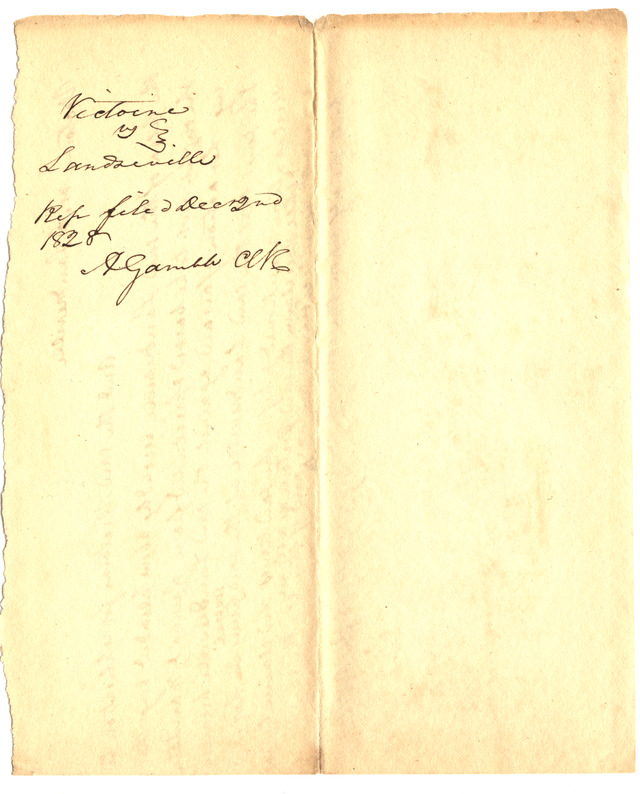 Victoire
vs
Landreville
Rep filed Dec 2nd
1828
A Gamble Clk